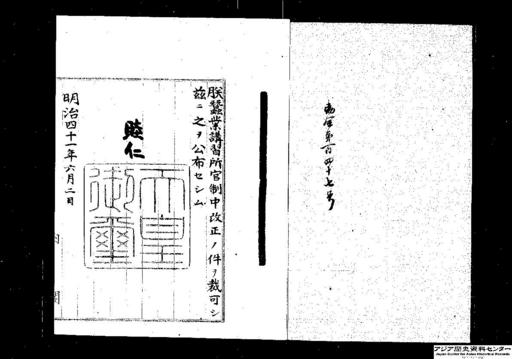 勅令第百四十七号
朕蚕業講習所官制中改正ノ件ヲ裁可シ
茲ニ之ヲ公布セシム
睦仁
天皇
御璽
明治四十一年六月二日
内閣
アジア歴史資料センター
Japan Center for Asian Historical Records